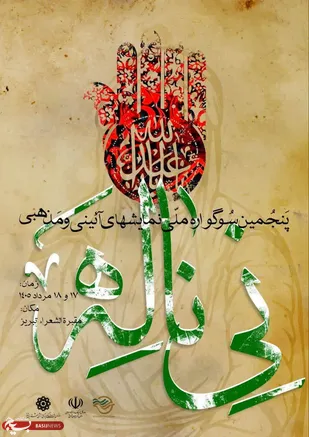 پنجمین سوگواره ملی نمایشهای آئینی و مذهبی
نی ناله ها
زمان:
۱۷ و ۱۸ مرداد ۱۴۰۵
مکان:
مقبرة الشعراء تبریز
BASIJNEWS